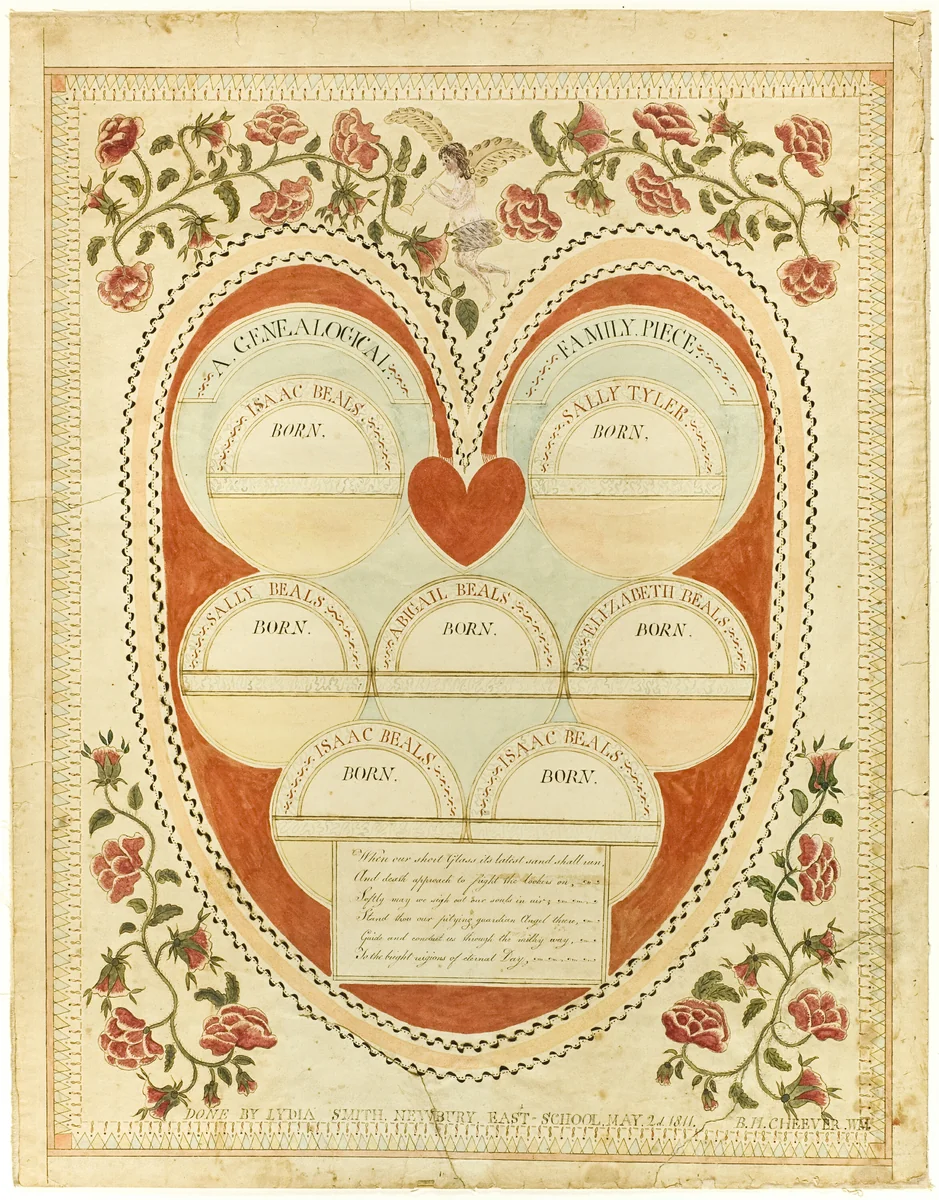 A. GENEALOGICAL.
FAMILY. PIECE.
ISAAC BEALS.
BORN.
SALLY TYLER.
BORN.
SALLY BEALS.
BORN.
ABIGAIL BEALS
BORN.
ELIZABETH BEALS.
BORN.
ISAAC BEALS.
BORN.
ISAAC BEALS.
BORN.
When our short Glass its latest sand shall run,
And death approach to fright the lookers on,
Softly may we sigh out our souls in air;
Stand thou our pitying guardian Angel there,
Guide and conduct us through the milky way,
To the bright regions of eternal Day,
DONE BY LYDIA SMITH. NEWBURY, EAST-SCHOOL, MAY. 2d. 1811. B. H. CHEEVER,